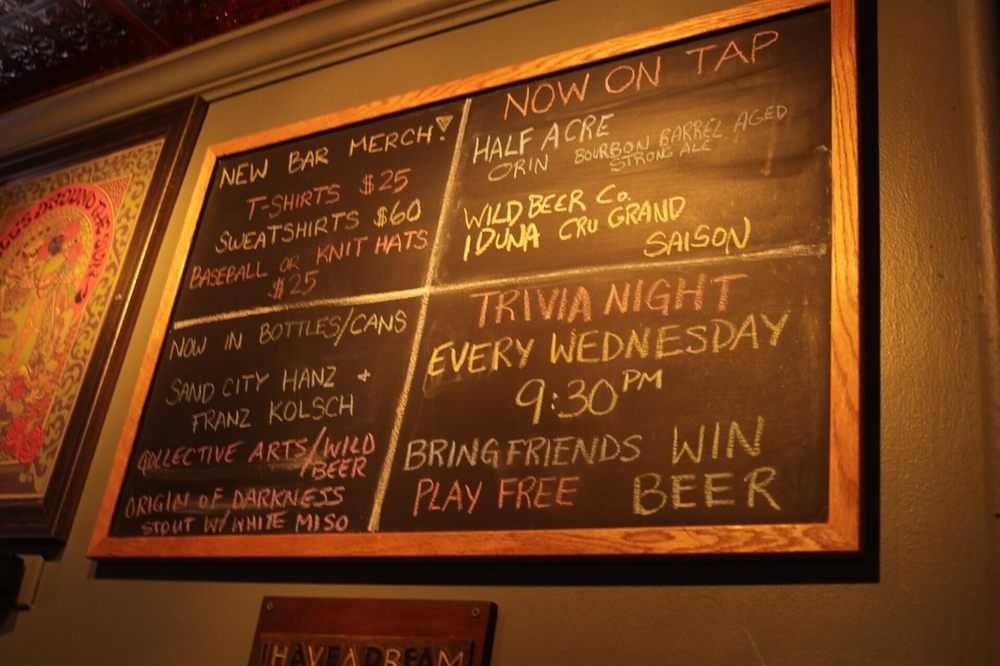 NEW BAR MERCH!
T-SHIRTS $25
SWEATSHIRTS $60
BASEBALL OR KNIT HATS
$25
NOW ON TAP
HALF ACRE
ORIN BOURBON BARREL AGED
STRONG ALE
WILD BEER CO.
IDUNA CRU GRAND
SAISON
NOW IN BOTTLES/CANS
SAND CITY HANZ +
FRANZ KOLSCH
COLLECTIVE ARTS/WILD
/BEER
ORIGIN OF DARKNESS
STOUT W/ WHITE MISO
TRIVIA NIGHT
EVERY WEDNESDAY
9:30 PM
BRING FRIENDS WIN
PLAY FREE BEER
I HAVE A DREAM